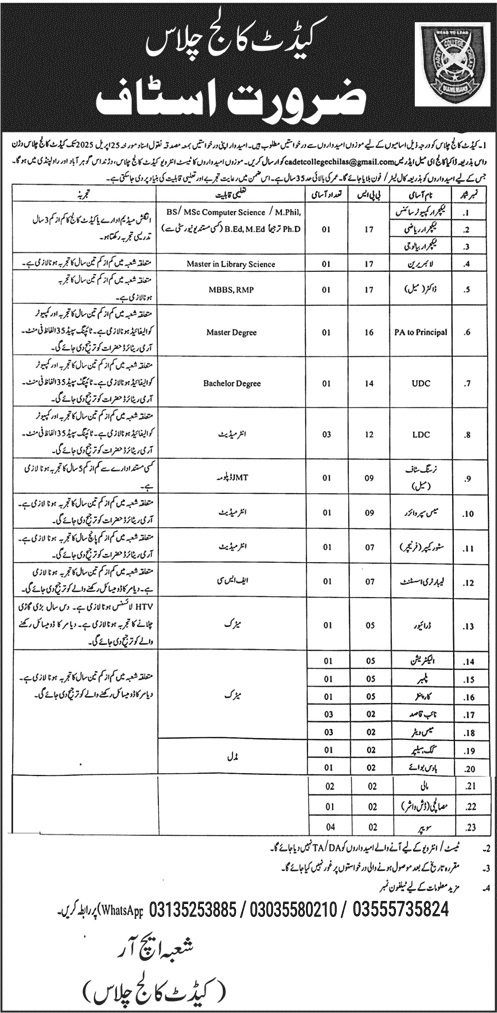 کیڈٹ کالج چلاس
ضرورت اسٹاف
1۔ کیڈٹ کالج چلاس کو درجہ ذیل آسامیوں کے لیے موزوں امیدواروں سے درخواستیں مطلوب ہیں۔ امیدوار اپنی درخواستیں بمعہ مصدقہ نقول اسناد مورخہ 25 اپریل 2025 تک کیڈٹ کالج چلاس وژن
واس بذریعہ ڈاک یا کالج ای میل ایڈریس cadetcollegechilas@gmail.com پر ارسال کریں۔ موزوں امیدواروں کا ٹیسٹ انٹرویو کیڈٹ کالج چلاس، دنیور گوہر آباد اور راولپنڈی میں ہوگا۔
جس کے لیے امیدواروں کو بذریعہ کال لیٹر / فون بلایا جائے گا۔ عمر کی بالائی حد 35 سال ہے۔ اس ضمن میں رعایت تجربے اور تعلیمی قابلیت کی بنیاد پر دی جا سکتی ہے۔
نمبر شمار نام آسامی بی پی ایس تعداد آسامی تعلیمی قابلیت تجربہ
1. لیکچرار کمپیوٹر سائنس
2. لیکچرار ریاضی
3. لیکچرار بیالوجی
17 01
BS/ MSc Computer Science / M.Phil,
Ph.D ترجیحا B.Ed, M.Ed (کسی مستند یونیورسٹی سے)
انگلش میڈیم ادارے یا کیڈٹ کالج کا کم از کم 3 سال
تدریسی تجربہ رکھتا ہو۔
4. لائبریرین 17 01 Master in Library Science متعلقہ شعبہ میں کم از کم تین سال کا تجربہ ہونا لازمی ہے۔
5. ڈاکٹر (میل) 17 01 MBBS, RMP متعلقہ شعبہ میں کم از کم تین سال کا تجربہ
ہونا لازمی ہے۔
6. PA to Principal 16 01 Master Degree متعلقہ شعبہ میں کم از کم تین سال کا تجربہ اور کمپیوٹر
کوالیفائیڈ ہونا لازمی ہے۔ ٹائپنگ سپیڈ 35 الفاظ فی منٹ۔
آرمی ریٹائرڈ حضرات کو ترجیح دی جائے گی۔
7. UDC 14 01 Bachelor Degree متعلقہ شعبہ میں کم از کم تین سال کا تجربہ اور کمپیوٹر
کوالیفائیڈ ہونا لازمی ہے۔ ٹائپنگ سپیڈ 35 الفاظ فی منٹ۔
آرمی ریٹائرڈ حضرات کو ترجیح دی جائے گی۔
8. LDC 12 03 انٹرمیڈیٹ متعلقہ شعبہ میں کم از کم تین سال کا تجربہ اور کمپیوٹر
کوالیفائیڈ ہونا لازمی ہے۔ ٹائپنگ سپیڈ 35 الفاظ فی منٹ۔
آرمی ریٹائرڈ حضرات کو ترجیح دی جائے گی۔
9. نرسنگ سٹاف
(میل) 09 01 JMT ڈپلومہ کسی مستند ادارے سے کم از کم 5 سال کا تجربہ ہونا لازمی
ہے۔
10. میس سپروائزر 09 01 انٹرمیڈیٹ متعلقہ شعبہ میں کم از کم تین سال کا تجربہ ہونا لازمی ہے۔
آرمی ریٹائرڈ حضرات کو ترجیح دی جائے گی۔
11. سٹور کیپر (فرنیچر) 07 01 انٹرمیڈیٹ متعلقہ شعبہ میں کم از کم پانچ سال کا تجربہ ہونا لازمی ہے۔
آرمی ریٹائرڈ حضرات کو ترجیح دی جائے گی۔
12. لیبارٹری اسسٹنٹ 07 01 ایف ایس سی متعلقہ شعبہ میں کم از کم تین سال کا تجربہ ہونا لازمی
ہے۔ دیامر کا ڈومیسائل رکھنے والے کو ترجیح دی جائے گی۔
13. ڈرائیور 05 01 میٹرک HTV لائسنس ہونا لازمی ہے۔ دس سال بڑی گاڑی
چلانے کا تجربہ ہونا لازمی ہے۔ دیامر کا ڈومیسائل رکھنے
والے کو ترجیح دی جائے گی۔
14. الیکٹریشن 05 01
15. پلمبر 05 01
16. کارپینٹر 05 01
17. نائب قاصد 02 03
18. میس ویٹر 02 03
میٹرک
متعلقہ شعبہ میں کم از کم تین سال کا تجربہ ہونا لازمی ہے۔
دیامر کا ڈومیسائل رکھنے والے کو ترجیح دی جائے گی۔
19. کک ہیلپر 02 01
20. ہاؤس بوائے 02 01
مڈل
21. مالی 02 02
22. مصالچی (ڈش واشر) 02 01
23. سویپر 02 04
2۔ ٹیسٹ / انٹرویو کے لیے آنے والے امیدواروں کو TA/DA نہیں دیا جائے گا۔
3۔ مقررہ تاریخ کے بعد موصول ہونے والی درخواستوں پر غور نہیں کیا جائے گا۔
4۔ مزید معلومات کے لیے ٹیلیفون نمبر
03555735824 / 03035580210 / 03135253885 (WhatsApp) پر رابطہ کریں۔
شعبہ ایچ آر
(کیڈٹ کالج چلاس)